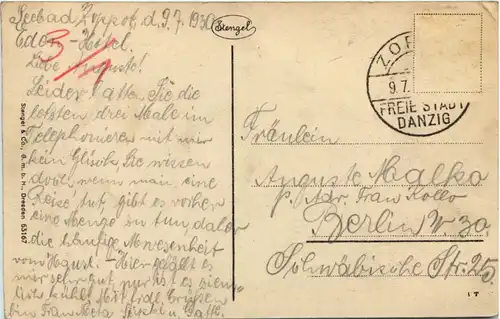 Seebad Zoppot, d. 9.7.1930
Eden-Hotel.
3/1
Liebe Auguste!
Leider hatten Sie die
letzten drei Male im
Telephonieren mit mir
kein Glück, Sie wissen
doch, wenn man eine
Reise tut, gibt es vorher
eine Menge zu tun, daher
die häufige Abwesenheit
vom August. - Hier gefällt es
mir sehr gut, nur ist es ziem-
lich kühl. Mit frdl. Grüssen
bin Frau Meta u. Gatte.
Stengel
Stengel & Co., G. m. b. H., Dresden 53167
ZOP
9.7.
FREIE STADT
DANZIG
Fräulein
Auguste Malko
p. Adr. Frau Kollo
Berlin W. 30
Schwäbische Str. 25.
1 T